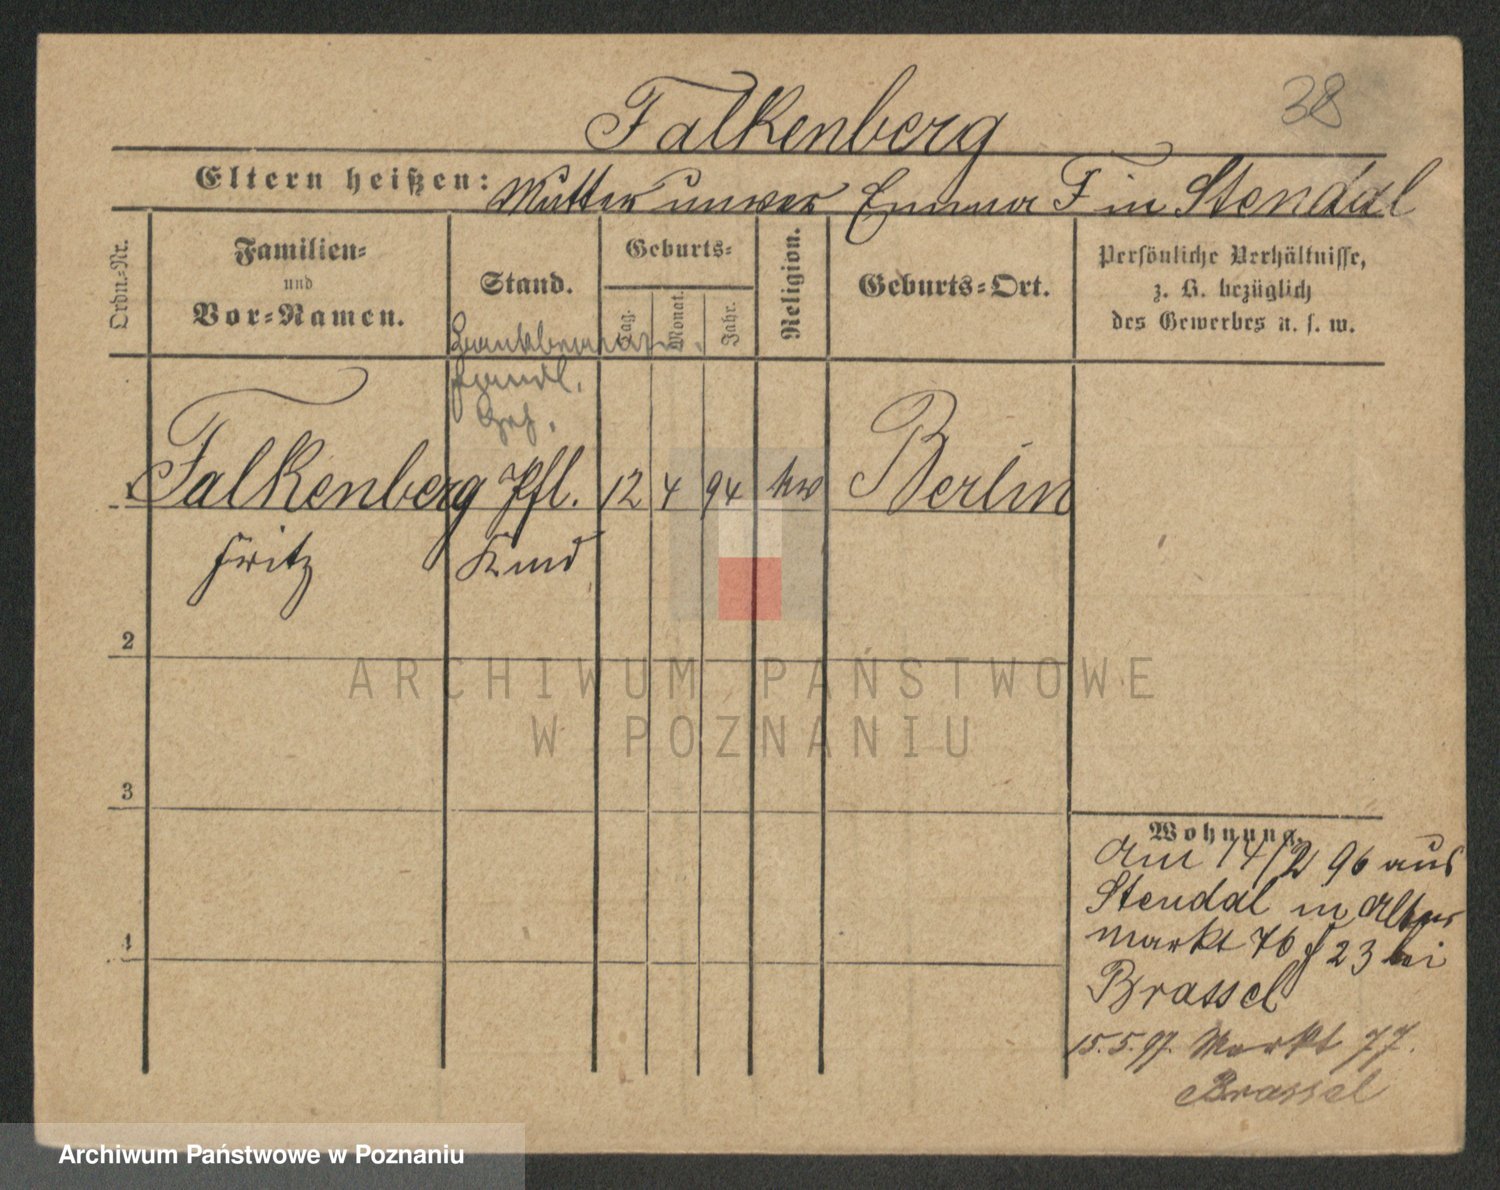 38
Falkenberg
Eltern heißen: Mutter unver Emma F in Stendal
Ordn.-Nr.
Familien-
und
Vor-Namen.
Stand.
Geburts-
Tag.
Monat.
Jahr.
Religion.
Geburts-Ort.
Persönliche Verhältnisse,
z. B. bezüglich
des Gewerbes u. s. w.
Falkenberg Pfl. 12 4 94 Berlin
Fritz Kind
2
3
4
ARCHIWUM PAŃSTWOWE
W POZNANIU
Wohnung.
Am 14/2 96 aus
Stendal in Alter
markt 76 23 bei
Brassel
15.5.97. Markt 77.
Brassel
Archiwum Państwowe w Poznaniu